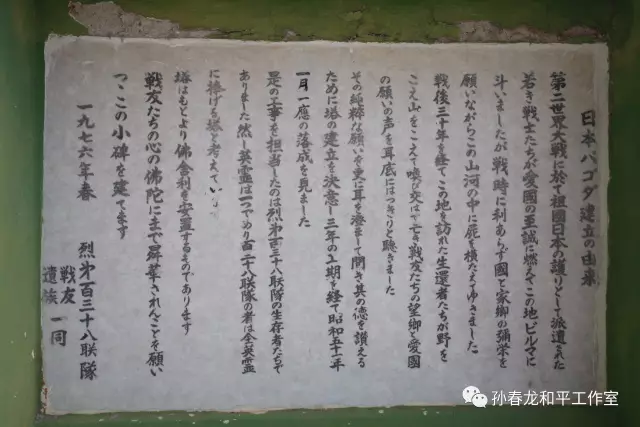 日本パゴダ建立の由来
第二世界大戦に於て祖國日本の護りとして派遣された
若き戦士たちが愛國の至誠に燃えてこの地ビルマに
斗いましたが戦時に利あらず國と家郷の彌栄を
願いながらこの山河の中に屍を横たえてゆきました
戦後三十年を経てこの地を訪れた生還者たちが野を
こえ山をこえて喚び交はす亡き戦友たちの望郷と愛國
の願いの声を耳底にはっきりと聴きました
その純粋な願いを更に耳を澄まして聞き其の徳を讃える
ために塔の建立を決意し三年の工期を経て昭和五十一年
一月一應の落成を見ました
是の工事を担当したのは烈第百三十八联隊の生存者たちで
ありました然し英霊は一つであり百三十八联隊の者は全英霊
に捧げる塔と考えて
塔はもとより佛舎利を安置するものであります
戦友たちの心の佛陀にまで昇華されんことを願い
つつこの小碑を建てます
一九七六年春
烈第百三十八联隊
戦友
遺族
一同
孙春龙和平工作室